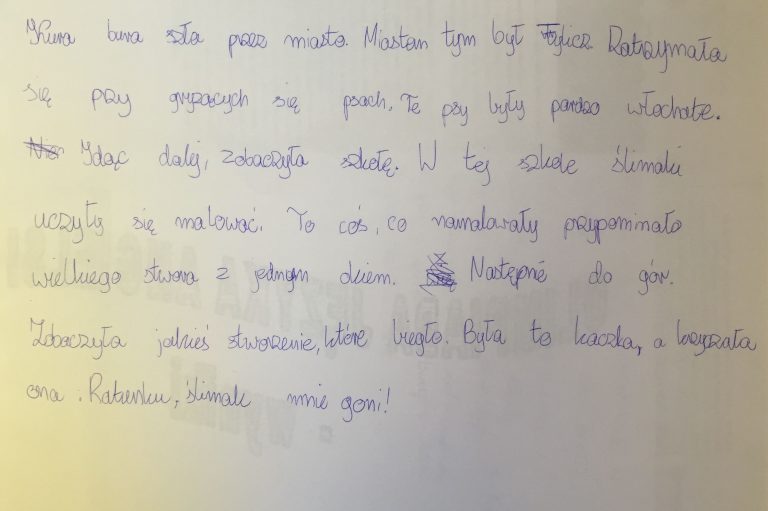 Kura bura szła przez miasto. Miastem tym był Tylicz. Zatrzymała
się przy gryzących się psach. Te psy były bardzo włochate.
Idąc dalej, zobaczyła szkołę. W tej szkole ślimaki
uczyły się malować. To coś, co namalowały przypominało
wielkiego stwora z jednym okiem. Następnie do gór.
Zobaczyła jakieś stworzenie, które biegło. Była to kaczka, a krzyczała
ona: Ratunku, ślimak mnie goni!